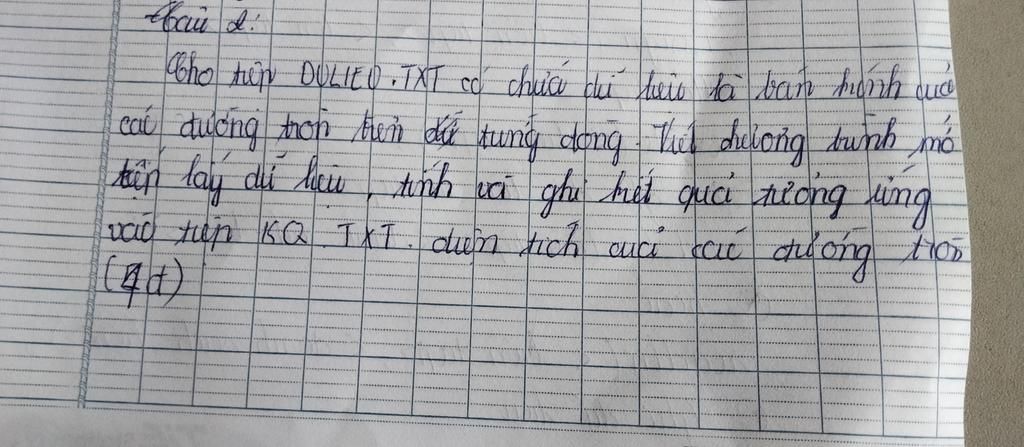 Câu 2:
Cho tệp DULIEU.TXT có chứa dữ liệu là bán kính của
các đường tròn trên từng dòng. Viết chương trình mở
tệp lấy dữ liệu, tính và ghi kết quả tương ứng
vào tệp KQ.TXT. diện tích của các đường tròn
(4đ)